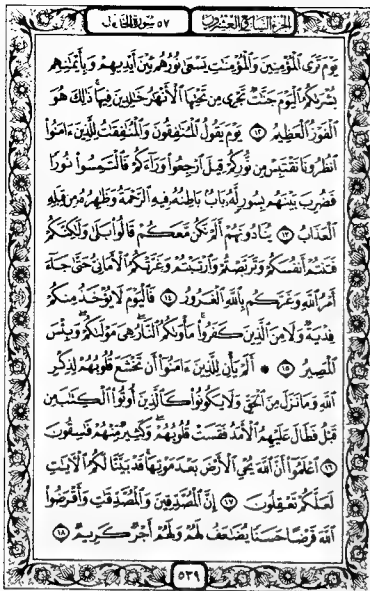 الجزء السابع والعشرون ٥٧ سورة الحديد
يَوْمَ تَرَى ٱلْمُؤْمِنِينَ وَٱلْمُؤْمِنَٰتِ يَسْعَىٰ نُورُهُم بَيْنَ أَيْدِيهِمْ وَبِأَيْمَٰنِهِم
بُشْرَىٰكُمُ ٱلْيَوْمَ جَنَّٰتٌ تَجْرِى مِن تَحْتِهَا ٱلْأَنْهَٰرُ خَٰلِدِينَ فِيهَا ۚ ذَٰلِكَ هُوَ
ٱلْفَوْزُ ٱلْعَظِيمُ ١٢ يَوْمَ يَقُولُ ٱلْمُنَٰفِقُونَ وَٱلْمُنَٰفِقَٰتُ لِلَّذِينَ ءَامَنُوا۟
ٱنظُرُونَا نَقْتَبِسْ مِن نُّورِكُمْ قِيلَ ٱرْجِعُوا۟ وَرَآءَكُمْ فَٱلْتَمِسُوا۟ نُورًا
فَضُرِبَ بَيْنَهُم بِسُورٍ لَّهُۥ بَابٌۢ بَاطِنُهُۥ فِيهِ ٱلرَّحْمَةُ وَظَٰهِرُهُۥ مِن قِبَلِهِ
ٱلْعَذَابُ ١٣ يُنَادُونَهُمْ أَلَمْ نَكُن مَّعَكُمْ ۖ قَالُوا۟ بَلَىٰ وَلَٰكِنَّكُمْ
فَتَنتُمْ أَنفُسَكُمْ وَتَرَبَّصْتُمْ وَٱرْتَبْتُمْ وَغَرَّتْكُمُ ٱلْأَمَانِىُّ حَتَّىٰ جَآءَ
أَمْرُ ٱللَّهِ وَغَرَّكُم بِٱللَّهِ ٱلْغَرُورُ ١٤ فَٱلْيَوْمَ لَا يُؤْخَذُ مِنكُمْ
فِدْيَةٌ وَلَا مِنَ ٱلَّذِينَ كَفَرُوا۟ ۚ مَأْوَىٰكُمُ ٱلنَّارُ ۖ هِىَ مَوْلَىٰكُمْ ۖ وَبِئْسَ
ٱلْمَصِيرُ ١٥ ۞ أَلَمْ يَأْنِ لِلَّذِينَ ءَامَنُوٓا۟ أَن تَخْشَعَ قُلُوبُهُمْ لِذِكْرِ
ٱللَّهِ وَمَا نَزَلَ مِنَ ٱلْحَقِّ وَلَا يَكُونُوا۟ كَٱلَّذِينَ أُوتُوا۟ ٱلْكِتَٰبَ مِن
قَبْلُ فَطَالَ عَلَيْهِمُ ٱلْأَمَدُ فَقَسَتْ قُلُوبُهُمْ ۖ وَكَثِيرٌ مِّنْهُمْ فَٰسِقُونَ
١٦ ٱعْلَمُوٓا۟ أَنَّ ٱللَّهَ يُحْىِ ٱلْأَرْضَ بَعْدَ مَوْتِهَا ۚ قَدْ بَيَّنَّا لَكُمُ ٱلْءَايَٰتِ
لَعَلَّكُمْ تَعْقِلُونَ ١٧ إِنَّ ٱلْمُصَّدِّقِينَ وَٱلْمُصَّدِّقَٰتِ وَأَقْرَضُوا۟
ٱللَّهَ قَرْضًا حَسَنًا يُضَٰعَفُ لَهُمْ وَلَهُمْ أَجْرٌ كَرِيمٌ ١٨
٥٣٩